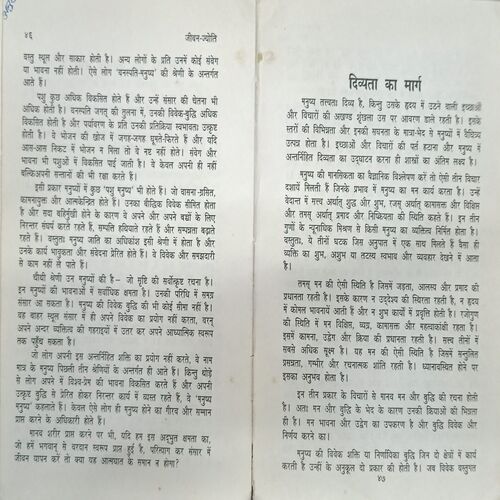 ४६
जीवन-ज्योति
वस्तु स्थूल और साकार होती है। अन्य लोगों के प्रति उनमें कोई संवेग
या भावना नहीं होती। ऐसे लोग 'वनस्पति-मनुष्य' की श्रेणी के अन्तर्गत
आते हैं।
पशु कुछ अधिक विकसित होते हैं और उन्हें संसार की चेतना भी
अधिक होती है। वनस्पति जगत् की तुलना में, उनकी विवेक-बुद्धि अधिक
विकसित होती है और पर्यावरण के प्रति उनकी प्रतिक्रिया स्वभावतः उत्कृष्ट
होती है। वे भोजन की खोज में जगह-जगह घूमते-फिरते हैं और यदि
आस-पास निकट में भोजन न मिला तो वे नष्ट नहीं होते। संवेग और
भावना भी पशुओं में विकसित पाई जाती है। वे केवल अपनी ही नहीं
बल्कि अपनी सन्तानों की भी रक्षा करते हैं।
इसी प्रकार मनुष्यों में कुछ 'पशु मनुष्य' भी होते हैं। जो वासना-ग्रसित,
कामनायुक्त और आत्मकेन्द्रित होते हैं। उनका बौद्धिक विवेक सीमित होता
है और सदा बहिर्मुखी होने के कारण वे अपने और अपने बच्चों के लिए
निरन्तर संघर्ष करते रहते हैं, सम्पत्ति हथियाते रहते हैं और सम्पन्नता बढ़ाते
रहते हैं। वस्तुतः मनुष्य जाति का अधिकांश इसी श्रेणी में होता है और
उनके कार्य भावुकता और संवेदना प्रेरित होते हैं। वे विवेक और समझदारी
से काम नहीं ले पाते हैं।
चौथी श्रेणी उन मनुष्यों की है— जो सृष्टि की सर्वोत्कृष्ट रचना है।
इन मनुष्यों की भावनाओं में सर्वाधिक क्षमता है। उनकी परिधि में समग्र
संसार आ सकता है। मनुष्य की विवेक बुद्धि की भी कोई सीमा नहीं है।
वह बाहर स्थूल संसार में ही अपने विवेक का प्रयोग नहीं करता, वरन्
अपने अन्दर व्यक्तित्व की गहराइयों में उतर कर अपने आध्यात्मिक स्वरूप
तक पहुँच सकता है।
जो लोग अपनी इस अन्तर्निहित शक्ति का प्रयोग नहीं करते, वे नाम
मात्र के मनुष्य पिछली तीन श्रेणियों के अन्तर्गत ही आते हैं। किन्तु थोड़े
से लोग अपने में विश्व-प्रेम की भावना विकसित करते हैं और अपनी
उत्कृष्ट बुद्धि से प्रेरित होकर निरन्तर कार्य में व्यस्त रहते हैं, वे 'मनुष्य
मनुष्य' कहलाते हैं। केवल ऐसे लोग ही मनुष्य होने का गौरव और सम्मान
प्राप्त करने के अधिकारी होते हैं।
मानव शरीर प्राप्त करने पर भी, यदि हम इस अद्भुत क्षमता का,
जो हमें भगवान् से वरदान स्वरूप प्राप्त हुई है, परित्याग कर संसार में
जीवन यापन करें तो क्या यह आत्मघात के समान न होगा?
दिव्यता का मार्ग
मनुष्य तत्त्वतः दिव्य है, किन्तु उसके हृदय में उठने वाली इच्छाओं
और विचारों की अखण्ड शृंखला उस पर आवरण डाले रहती है। इसके
स्तरों की विभिन्नता और इनकी सघनता के मात्रा-भेद से मनुष्यों में वैचित्र्य
उत्पन्न होता है। इच्छाओं और विचारों की पर्त हटाना और मनुष्य में
अन्तर्निहित दिव्यता का उद्घाटन करना ही शास्त्रों का अंतिम लक्ष्य है।
मनुष्य की मानसिकता का वैज्ञानिक विश्लेषण करें तो ऐसी तीन विचार
दशायें मिलती हैं जिनके प्रभाव में मनुष्य का मन कार्य करता है। उन्हें
वेदान्त में सत्त्व अर्थात् शुद्ध और शुभ, रजस् अर्थात् कामासक्त और विक्षिप्त
और तमस् अर्थात् प्रमाद और निष्क्रियता की स्थिति कहते हैं। इन तीन
गुणों के न्यूनाधिक मिश्रण से किसी मनुष्य का व्यक्तित्व निर्मित होता है।
वस्तुतः, ये तीनों घटक जिस अनुपात में एक साथ मिलते हैं वैसा ही
व्यक्ति का शुभ, अशुभ या तटस्थ स्वभाव और व्यवहार देखने में आता
है।
तमस् मन की ऐसी स्थिति है जिसमें जड़ता, आलस्य और प्रमाद की
प्रधानता रहती है। इसके कारण न उद्देश्य की स्थिरता रहती है, न हृदय
में कोमल भावनायें आती हैं और न शुभ कार्यों में प्रवृत्ति होती है। रजोगुण
की स्थिति में मन विक्षिप्त, व्यग्र, कामासक्त और महत्वाकांक्षी रहता है।
इसमें कामना, उद्वेग और क्रिया की प्रधानता रहती है। सत्त्व तीनों में
सबसे अधिक सूक्ष्म है। यह मन की ऐसी स्थिति है जिसमें सन्तुलित
प्रसन्नता, गम्भीर और रचनात्मक शांति रहती है। ध्यानावस्थित होने पर
इसका अनुभव होता है।
इन तीन प्रकार के विचारों से मानव मन और बुद्धि की रचना होती
है। अतः मन और बुद्धि के भेद के कारण उनकी क्रियाओं की भिन्नता
ही है। मन भावना और उद्वेग का उपकरण है और बुद्धि विवेक और
निर्णय करने का।
मनुष्य की विवेक शक्ति या निर्णायिका बुद्धि जिन दो क्षेत्रों में कार्य
करती है उन्हीं के अनुकूल दो प्रकार की होती है। जब विवेक वस्तुगत
४७